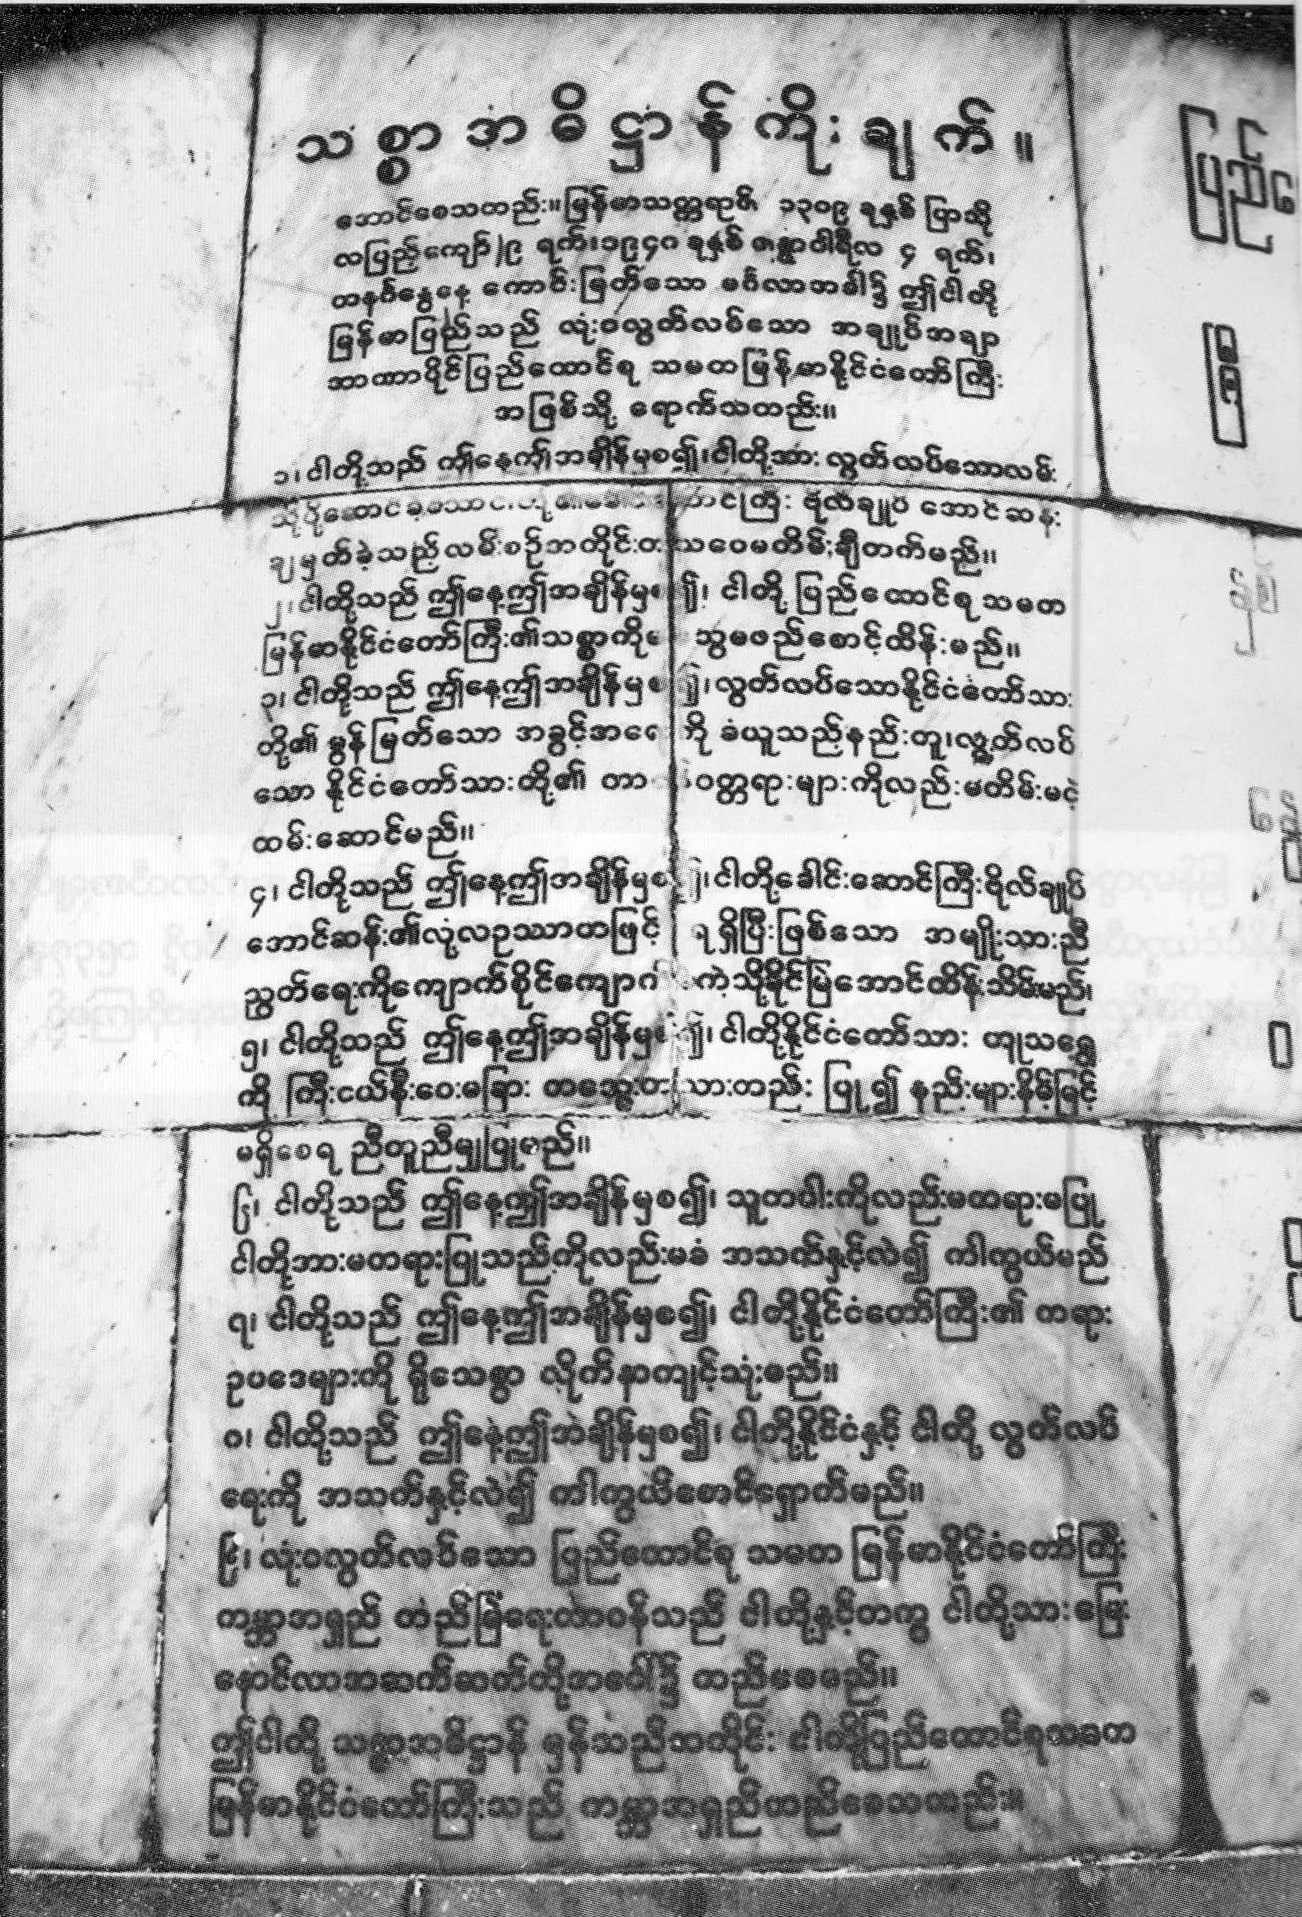 သစ္စာအဓိဋ္ဌာန်ကိုးချက်။
အောင်စေသတည်း။မြန်မာသက္ကရာဇ် ၁၃၀၉ ခုနှစ် ပြာသို
လပြည့်ကျော် ၉ ရက်၊၁၉၄၈ ခုနှစ် ဇန္နဝါရီလ ၄ ရက်၊
တနင်္ဂနွေနေ့ ကောင်းမြတ်သော မင်္ဂလာအခါ၌ ဤငါတို့
မြန်မာပြည်သည် လုံးဝလွတ်လပ်သော အချုပ်အချာ
အာဏာပိုင်ပြည်ထောင်စု သမတမြန်မာနိုင်ငံတော်ကြီး
အဖြစ်သို့ ရောက်သတည်း။
၁၊ ငါတို့သည် ဤနေ့ဤအချိန်မှစ၍၊ငါတို့အား လွတ်လပ်သောလမ်း
သို့ပို့ဆောင်ခဲ့သော ဗိုလ်ချုပ် အောင်ဆန်း
ချမှတ်ခဲ့သည့်လမ်းစဉ်အတိုင်း မတိမ်းချီတက်မည်။
၂၊ ငါတို့သည် ဤနေ့ဤအချိန်မှစ၍၊ ငါတို့ ပြည်ထောင်စု သမတ
မြန်မာနိုင်ငံတော်ကြီး၏သစ္စာကို စောင့်ထိန်းမည်။
၃၊ ငါတို့သည် ဤနေ့ဤအချိန်မှစ၍၊လွတ်လပ်သောနိုင်ငံတော်သား
တို့၏ မွန်မြတ်သော အခွင့်အရေးကို ခံယူသည့်နည်းတူ၊လွတ်လပ်
သော နိုင်ငံတော်သားတို့၏ တာဝန်ဝတ္တရားများကိုလည်းမတိမ်းမငဲ့
ထမ်းဆောင်မည်။
၄၊ ငါတို့သည် ဤနေ့ဤအချိန်မှစ၍၊ငါတို့ခေါင်းဆောင်ကြီးဗိုလ်ချုပ်
အောင်ဆန်း၏လုံ့လဥဿာဟဖြင့် ရရှိပြီးဖြစ်သော အမျိုးသားညီ
ညွတ်ရေးကိုကျောက်စိုင်ကျောက် ကဲ့သို့ခိုင်မြဲအောင်ထိန်းသိမ်းမည်၊
၅၊ ငါတို့သည် ဤနေ့ဤအချိန်မှစ၍၊ ငါတို့နိုင်ငံတော်သား
ကို ကြီးငယ်နီးဝေးမခြား တသွေးတသားတည်း ပြု၍ နည်းများနိမ့်မြင့်
မရှိစေရ ညီတူညီမျှပြုမည်။
၆၊ ငါတို့သည် ဤနေ့ဤအချိန်မှစ၍၊ သူတပါးကိုလည်းမတရားမပြု
ငါတို့အားမတရားပြုသည်ကိုလည်းမခံ အသက်နှင့်လဲ၍ ကါကွယ်မည်
၇၊ ငါတို့သည် ဤနေ့ဤအချိန်မှစ၍၊ ငါတို့နိုင်ငံတော်ကြီး၏ တရား
ဥပဒေများကို ရိုသေစွာ လိုက်နာကျင့်သုံးမည်။
၈၊ ငါတို့သည် ဤနေ့ဤအချိန်မှစ၍၊ ငါတို့နိုင်ငံနှင့် ငါတို့ လွတ်လပ်
ရေးကို အသက်နှင့်လဲ၍ ကါကွယ်စောင့်ရှောက်မည်။
၉၊ လုံးဝလွတ်လပ်သော ပြည်ထောင်စု သမတ မြန်မာနိုင်ငံတော်ကြီး
ကမ္ဘာအရှည် တည်မြဲရေးတာဝန်သည် ငါတို့နှင့်တကွ ငါတို့သားမြေး
နောင်လာအဆက်ဆက်တို့အပေါ်၌ တည်စေမည်။
ဤငါတို့ သစ္စာအဓိဋ္ဌာန် မှန်သည့်အတိုင်း ငါတို့ပြည်ထောင်စုသမတ
မြန်မာနိုင်ငံတော်ကြီးသည် ကမ္ဘာအရှည်တည်စေသတည်း။